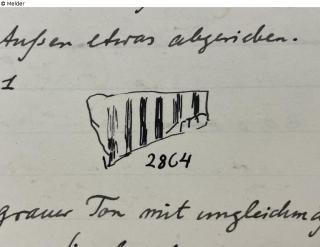 © Melder
Außen etwas abgerieben.
1
2864
grauer Ton mit